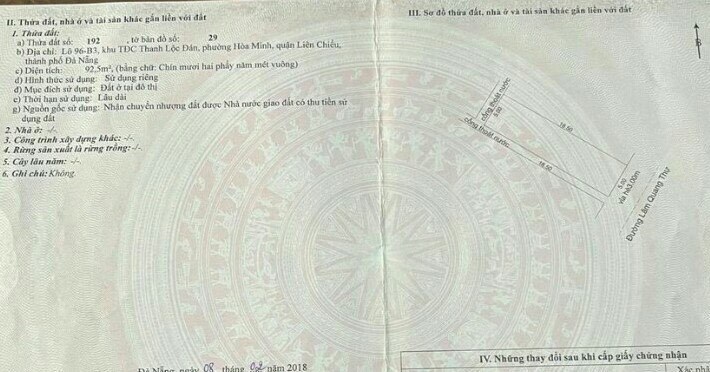 II. Thửa đất, nhà ở và tài sản khác gắn liền với đất
1. Thửa đất:
a) Thửa đất số: 192 , tờ bản đồ số: 29
b) Địa chỉ: Lô 96-B3, khu TĐC Thanh Lộc Đán, phường Hòa Minh, quận Liên Chiểu,
thành phố Đà Nẵng
c) Diện tích: 92,5m², (bằng chữ: Chín mươi hai phẩy năm mét vuông)
d) Hình thức sử dụng: Sử dụng riêng
đ) Mục đích sử dụng: Đất ở tại đô thị
e) Thời hạn sử dụng: Lâu dài
g) Nguồn gốc sử dụng: Nhận chuyển nhượng đất được Nhà nước giao đất có thu tiền sử
dụng đất
2. Nhà ở: -/-
3. Công trình xây dựng khác: -/-
4. Rừng sản xuất là rừng trồng: -/-
5. Cây lâu năm: -/-
6. Ghi chú: Không.
Đà Nẵng, ngày 08 tháng 02 năm 2018
III. Sơ đồ thửa đất, nhà ở và tài sản khác gắn liền với đất
B
cống thoát nước
5.00
cống thoát nước
18.50
18.50
5.00
vỉa hè3.00m
Đường Lâm Quang Thự
IV. Những thay đổi sau khi cấp giấy chứng nhận
Xác nhậ